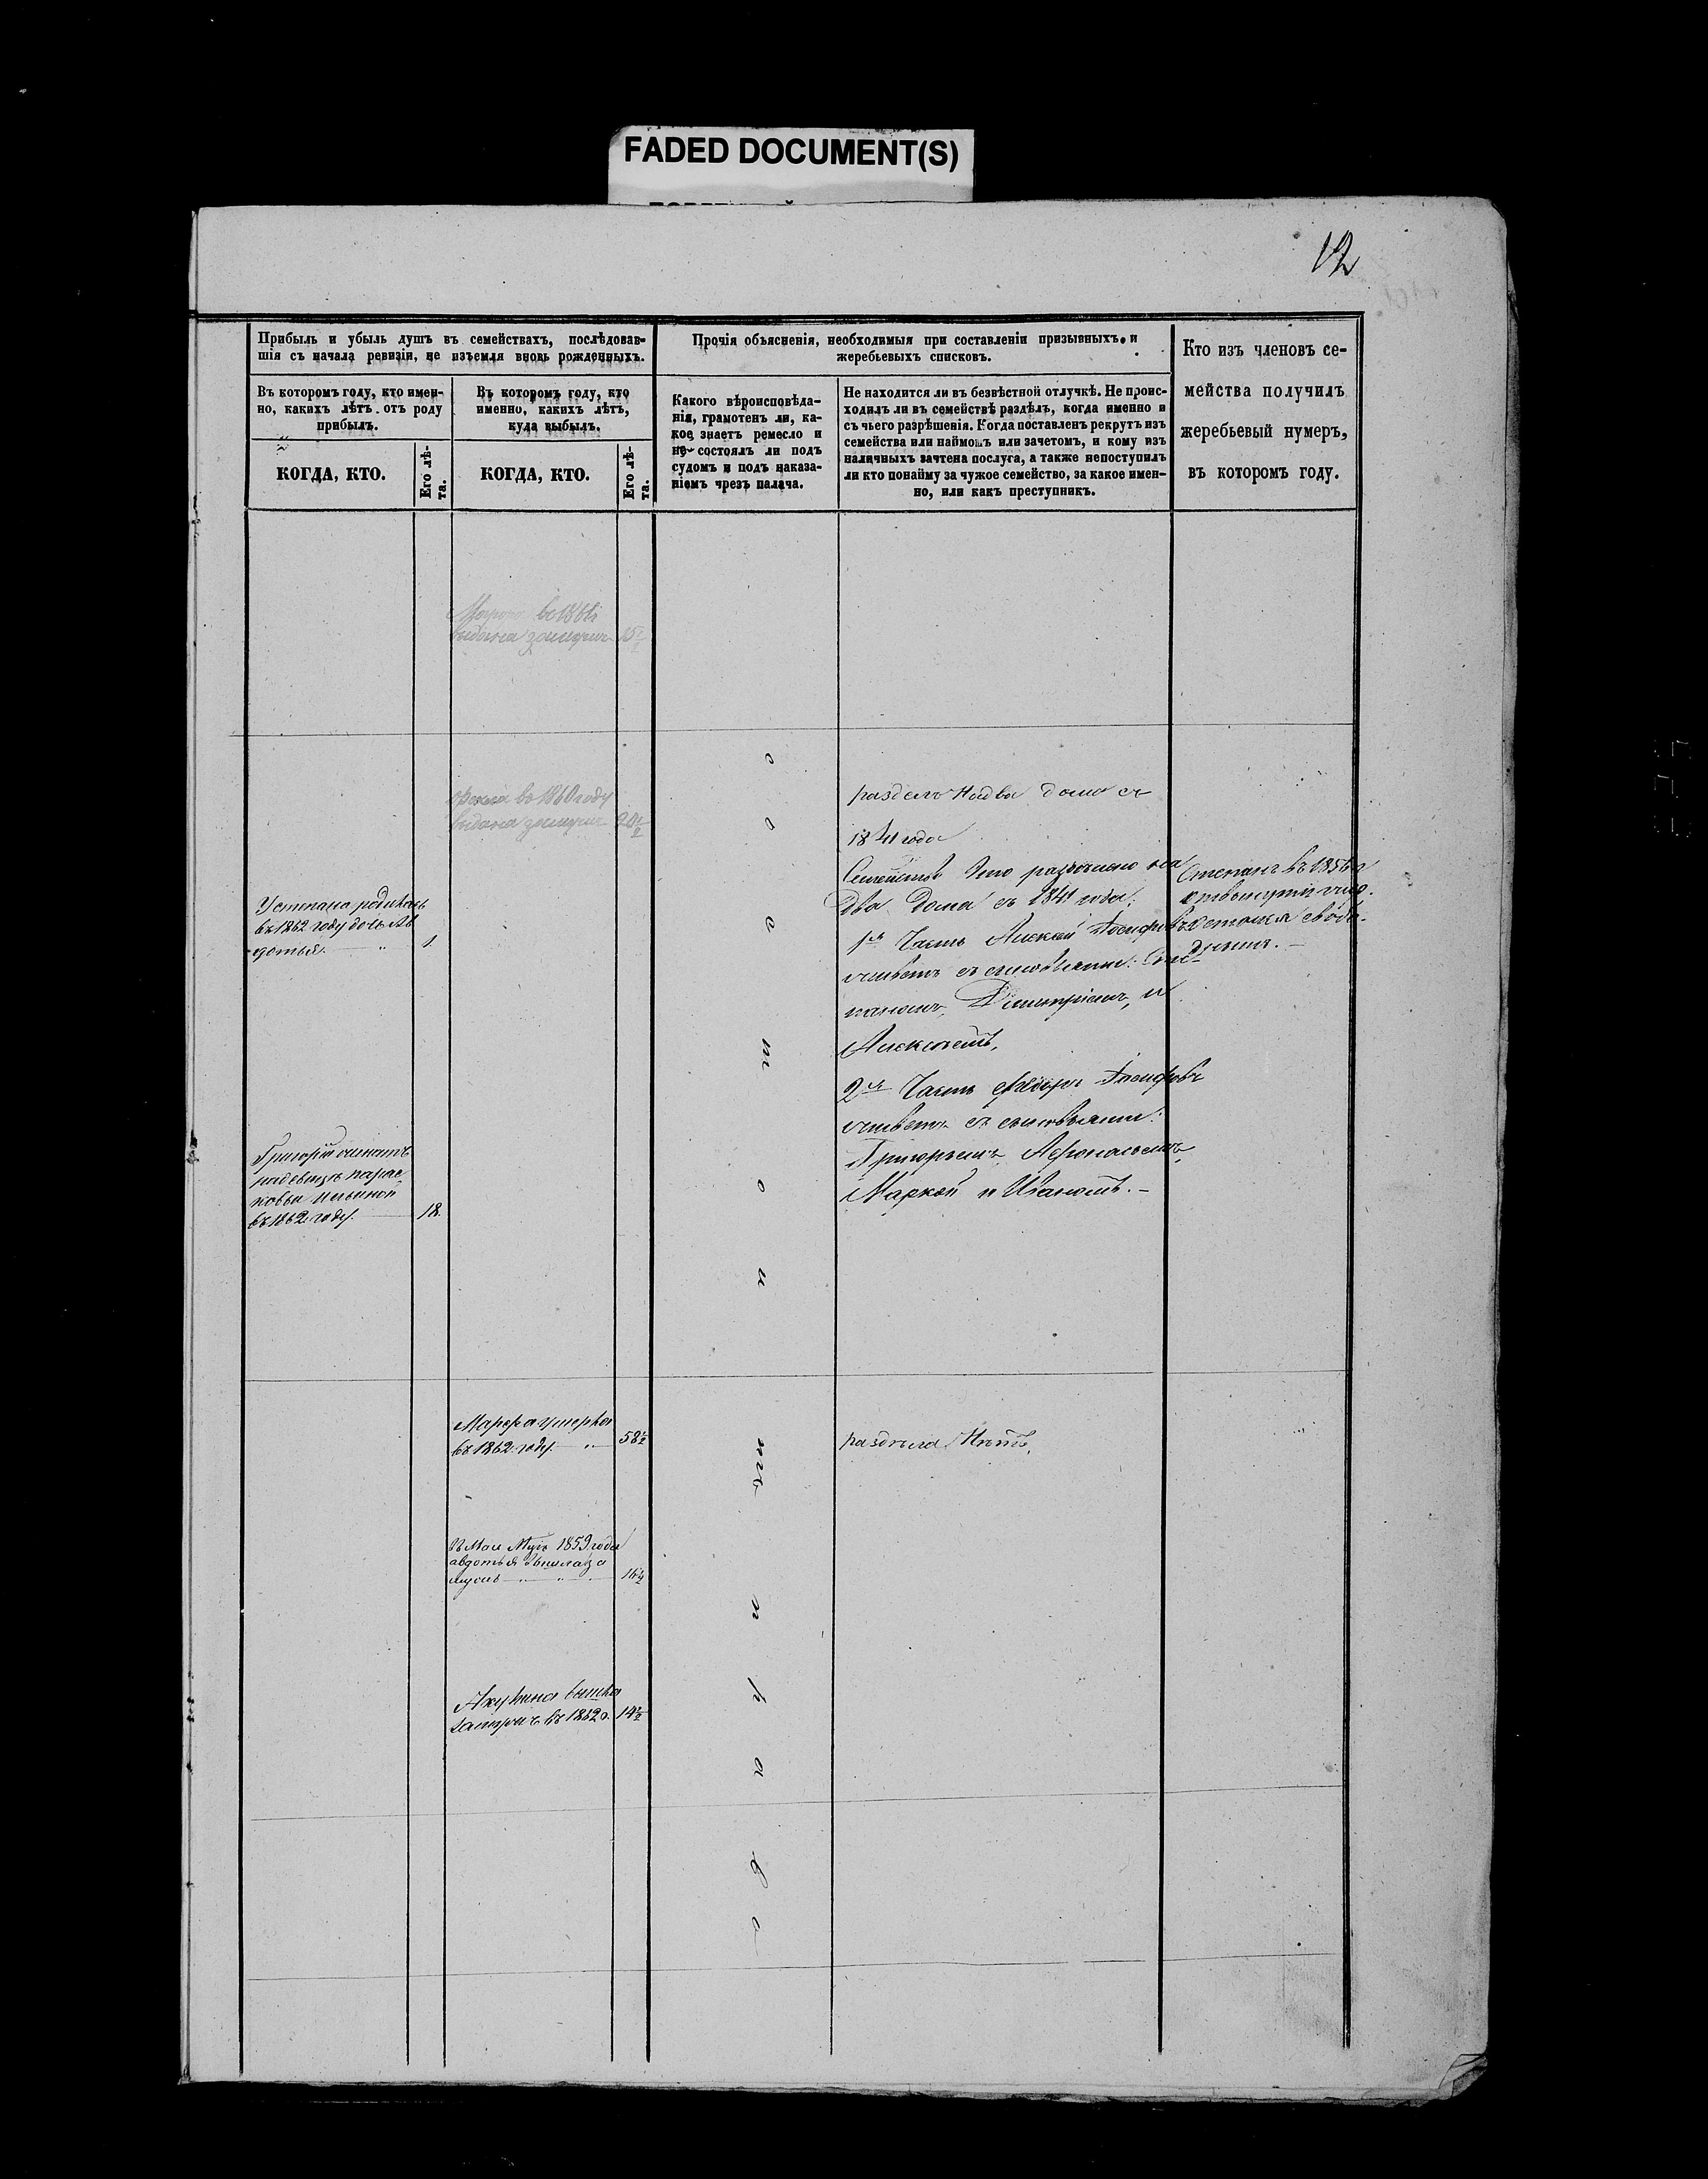 FADED DOCUMENT(S)
12
Прибыль и убыль душъ въ семействахъ, послѣдовав-
шія съ начала ревизіи, не изъемля вновь рожденныхъ.
Прочія объясненія, необходимыя при составленіи призывныхъ и
жеребьевыхъ списковъ.
Кто изъ членовъ се-
мейства получилъ
жеребьевый нумеръ,
въ которомъ году.
Въ которомъ году, кто имен-
но, какихъ лѣтъ отъ роду
прибылъ.
Въ которомъ году, кто
именно, какихъ лѣтъ,
куда выбылъ.
Какого вѣроисповѣда-
нія, грамотенъ ли, ка-
кое знаетъ ремесло и
не состоялъ ли подъ
судомъ и подъ наказа-
ніемъ чрезъ палача.
Не находится ли въ безвѣстной отлучкѣ. Не проис-
ходилъ ли въ семействѣ раздѣлъ, когда именно и
съ чьего разрѣшенія. Когда поставленъ рекрутъ изъ
семейства или наймомъ или зачетомъ, и кому изъ
наличныхъ зачтена послуга, а также непоступилъ
ли кто понайму за чужое семейство, за какое имен-
но, или какъ преступникъ.
КОГДА, КТО.
Его лѣ-
та.
КОГДА, КТО.
Его лѣ-
та.
во 1861
выдана замужъ 15
во 1860 году
выдана замужъ
раздел на два дома съ
1841 года
Семейство это раздѣлено на
два дома съ 1841 года.
1я Часть Алексей Иосифовъ
живетъ съ сыновьями: Сте-
паномъ, Димитріемъ, и
Алексѣемъ,
2я Часть Ѳедоръ Иосифовъ
живетъ съ сыновьями:
Григорьемъ, Афонасьемъ,
Маркой и Иваномъ.
Степанъ въ 1854
У степана родилась
въ 1862 году дочь Ав-
дотья. 1.
Григорій женатъ
на девицѣ парас-
ковьи ильиной
въ 1862 году. 18.
Марфа умерла
въ 1862 году 58½
раздѣла Нѣтъ.
Въ Мае Мцѣ 1859 года
авдотья вышла за
мужъ 16½
Акулина вышла
замужъ въ 1862 г. 19½